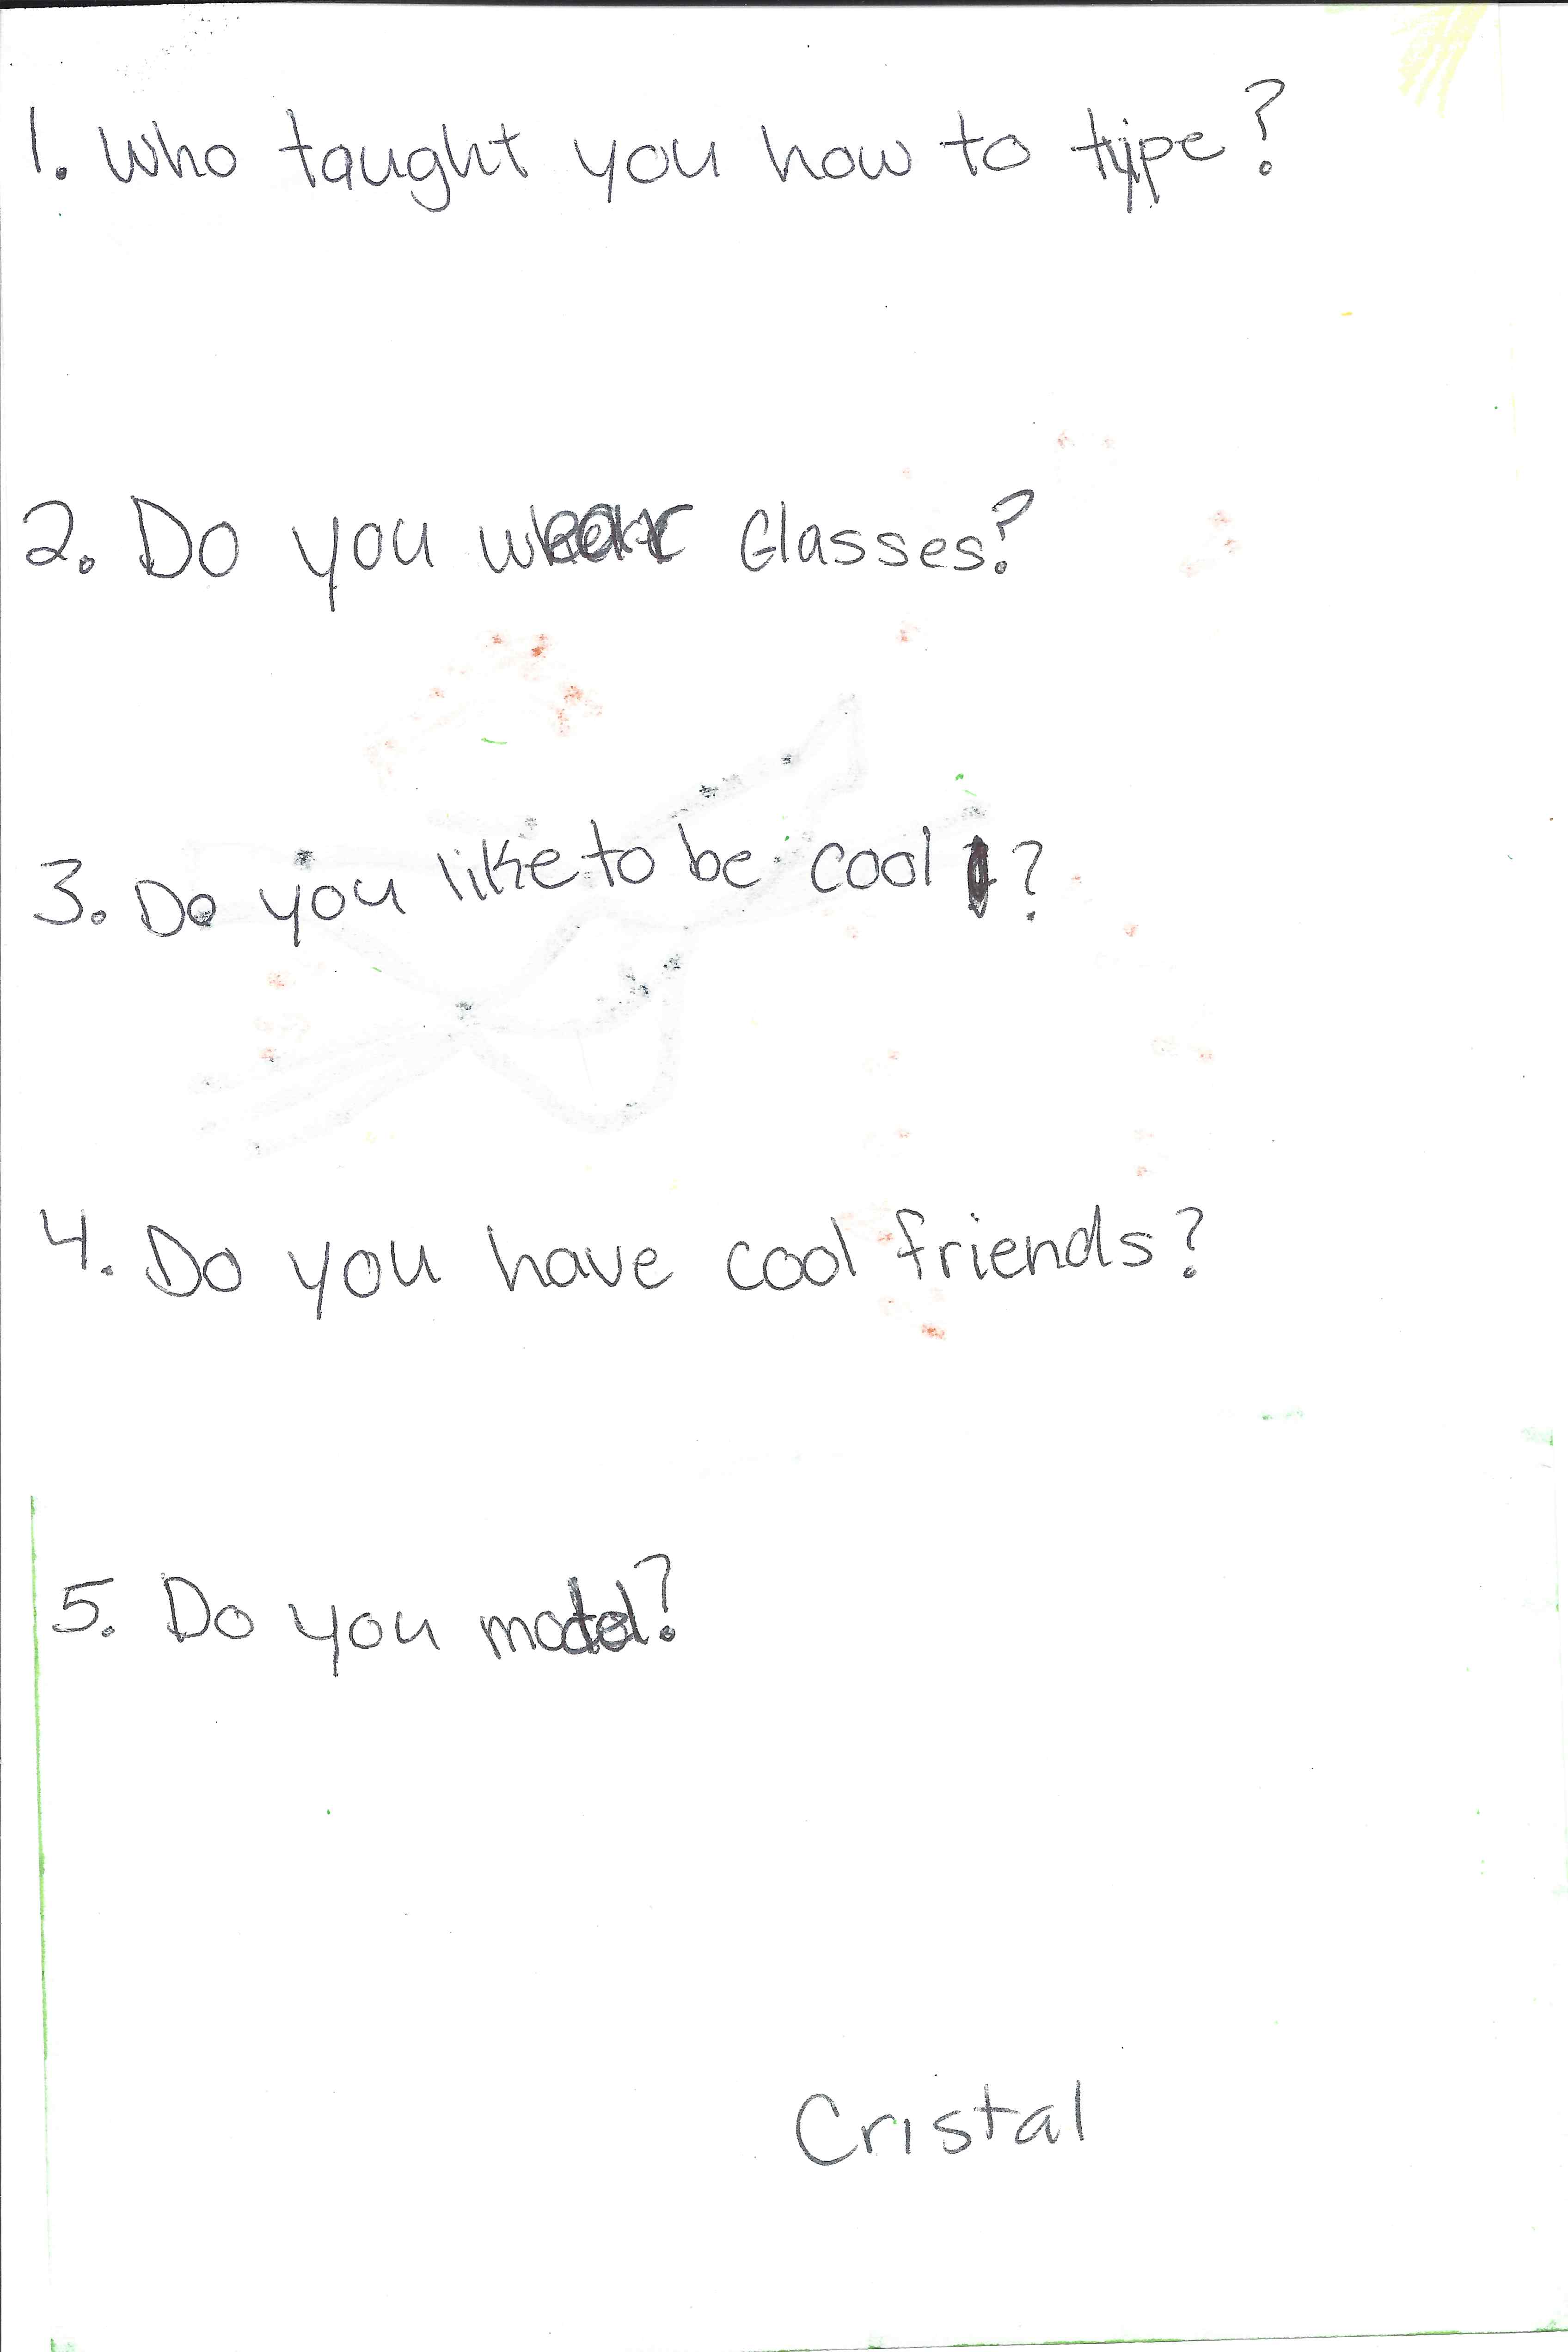 1. Who taught you how to type?
2. Do you wear Glasses?
3. Do you like to be cool ?
4. Do you have cool friends?
5. Do you model?
Cristal